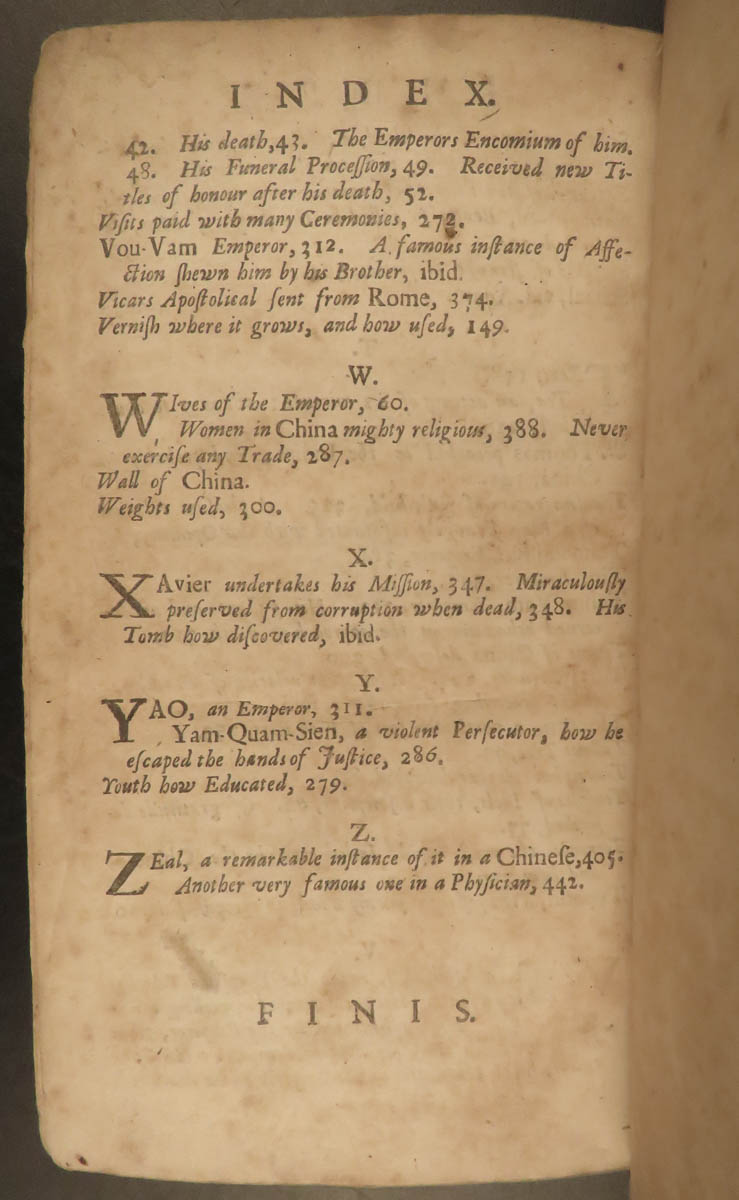 INDEX.
42. His death,43. The Emperors Encomium of him.
48. His Funeral Proceſſion, 49. Received new Ti-
tles of honour after his death, 52.
Viſits paid with many Ceremonies, 272.
Vou-Vam Emperor, 312. A famous inſtance of Affe-
ction ſhewn him by his Brother, ibid.
Vicars Apoſtolical ſent from Rome, 374.
Verniſh where it grows, and how uſed, 149.
W.
WIves of the Emperor, 60.
Women in China mighty religious, 388. Never
exerciſe any Trade, 287.
Wall of China.
Weights uſed, 300.
X.
XAvier undertakes his Miſſion, 347. Miraculouſly
preſerved from corruption when dead, 348. His
Tomb how diſcovered, ibid.
Y.
YAO, an Emperor, 311.
Yam-Quam-Sien, a violent Perſecutor, how he
eſcaped the hands of Juſtice, 286.
Youth how Educated, 279.
Z.
ZEal, a remarkable inſtance of it in a Chineſe,405.
Another very famous one in a Phyſician, 442.
FINIS.